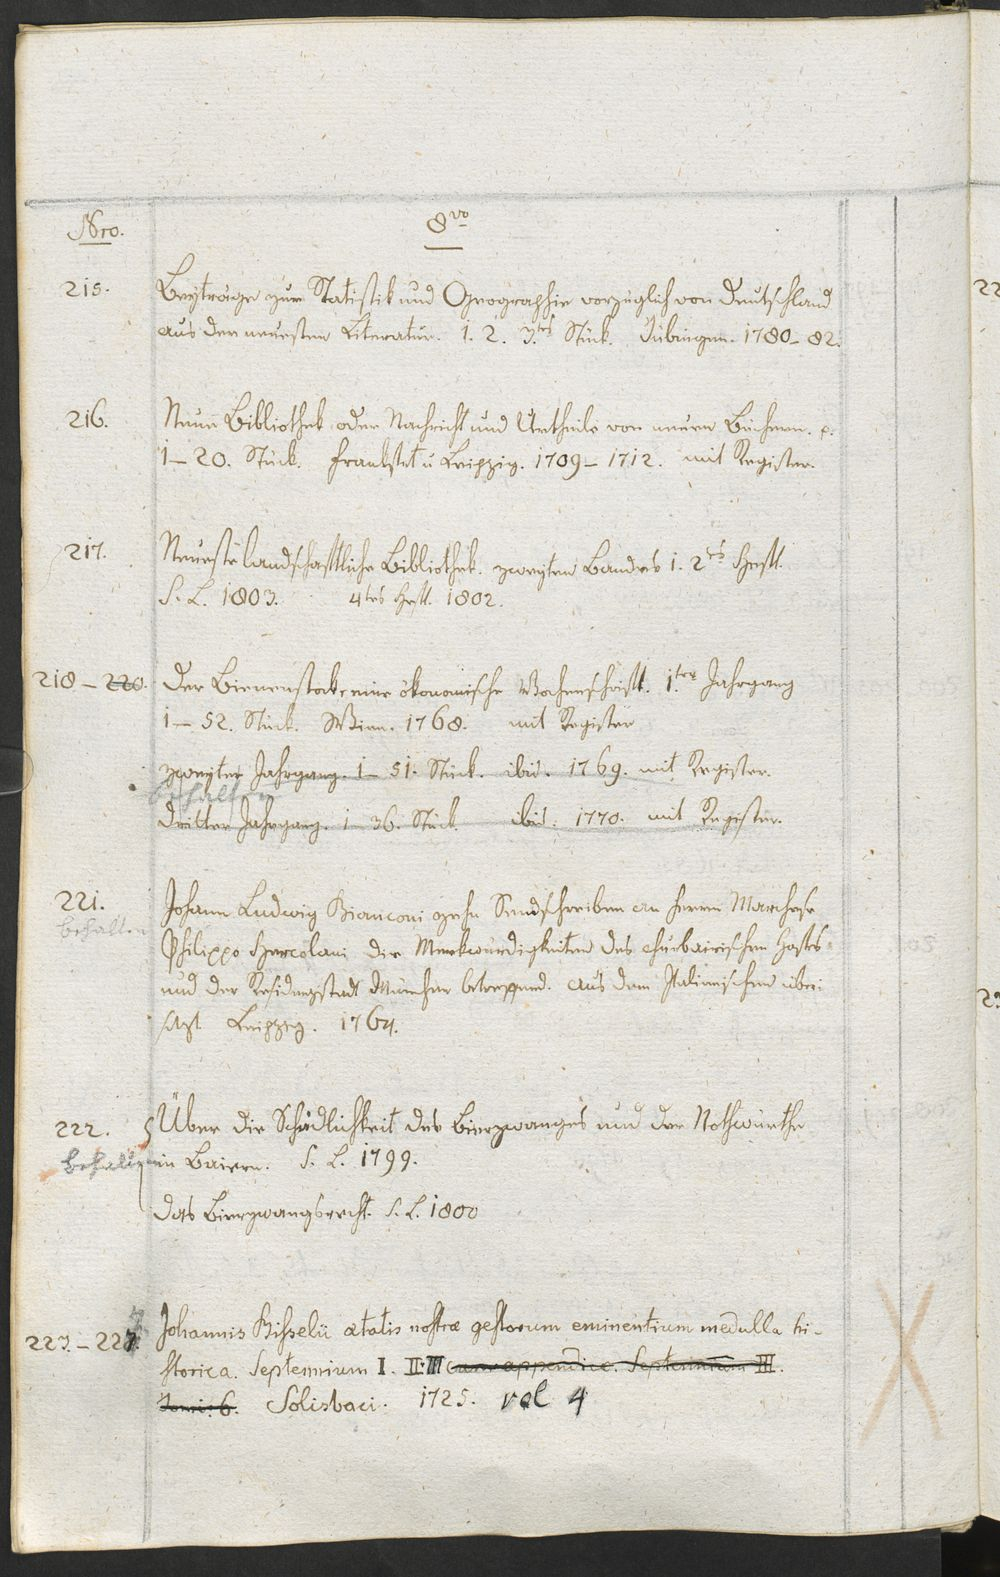 Nro. 8vo
215. Beyträge zur Statistik und Geographie vorzüglich von Deutschland
aus der neuesten Literatur. 1. 2. 3.tes Stück. Tübingen. 1780–82.
216. Neue Bibliothek oder Nachricht und Urtheile von neuen Büchern.
1–20. Stück. Frankfrt u Leipzig. 1709–1712. mit Register.
217. Neueste landschaftliche Bibliothek. zweyten Bandes 1. 2tes Heft.
S. L. 1803. 4tes Heft. 1802.
218–220. Der Bienenstock, eine ökonomische Wochenschrift. 1.ter Jahrgang
1–52. Stück. Wien. 1768. mit Register
zweyter Jahrgang. 1–51. Stück. ibid. 1769. mit Register.
behalten
dritter Jahrgang. 1–36. Stück. ibid. 1770. mit Register.
221. Johann Ludwig Bianconi zehn Sendschreiben an Herrn Marchese
behalten
Philippo Hercolani die Merkwürdigkeiten des churbairischen Hofes
und der Residenzstadt München betreffend. aus dem Italienischen über-
setzt Leipzig. 1764.
222. Über die Schädlichkeit des Bierzwanges und der Nothwürthe
behalten in Baiern. S. L. 1799.
das Bierzwangsrecht. S. L. 1800
223.–227. Johannis Bisselii ætatis nostræ gestorum eminentium medulla hi-
storica. Septennium I. II. III cum appendice. Septennium III.
Tomi. 6. Solisbaci. 1725. vol 4